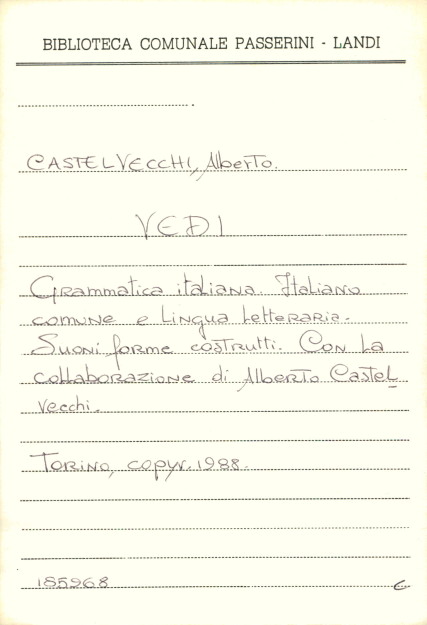 BIBLIOTECA COMUNALE PASSERINI - LANDI
CASTELVECCHI, Alberto.
VEDI
Grammatica italiana. Italiano
comune e lingua letteraria.
Suoni forme costrutti. Con la
collaborazione di Alberto Castel
vecchi.
Torino, copyr. 1988.
185968
c